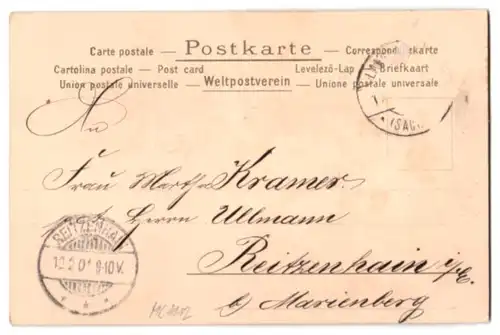 Carte postale — Postkarte — Correspondenzkarte
Cartolina postale — Post card Levelező-Lap — Briefkaart
Union postale universelle — Weltpostverein — Unione postale universale
An
Frau Martha Kramer
Herrn Ullmann
Reitzenhain i/E.
b/ Marienberg
REITZENHAIN
9-10V.